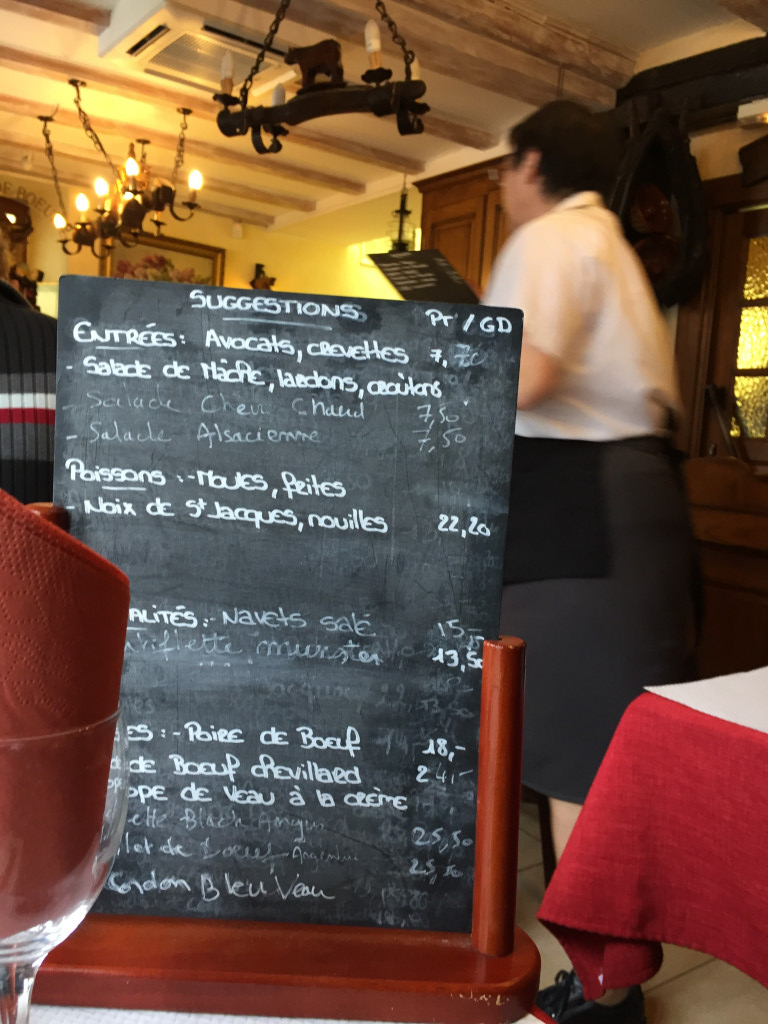 SUGGESTIONS PT / GD
ENTRÉES: AVOCATS, CREVETTES 7,
- SALADE DE MÂCHE, LARDONS, CROÛTONS
- Salade Chev Chaud 7,50
- Salade Alsacienne 7,50
POISSONS :- MOULES, FRITES
- NOIX DE ST JACQUES, NOUILLES 22,20
ALITÉS :- NAVETS SALÉ 15,-
iflette munster 13,50
ES :- POIRE DE BOEUF 18,-
DE BOEUF CHEVILLARD 24,-
OPE DE VEAU À LA CRÈME
ette Black Angus 25,50
let de Boeuf Argentine 25,50
Cordon Bleu Veau
DE BOEU